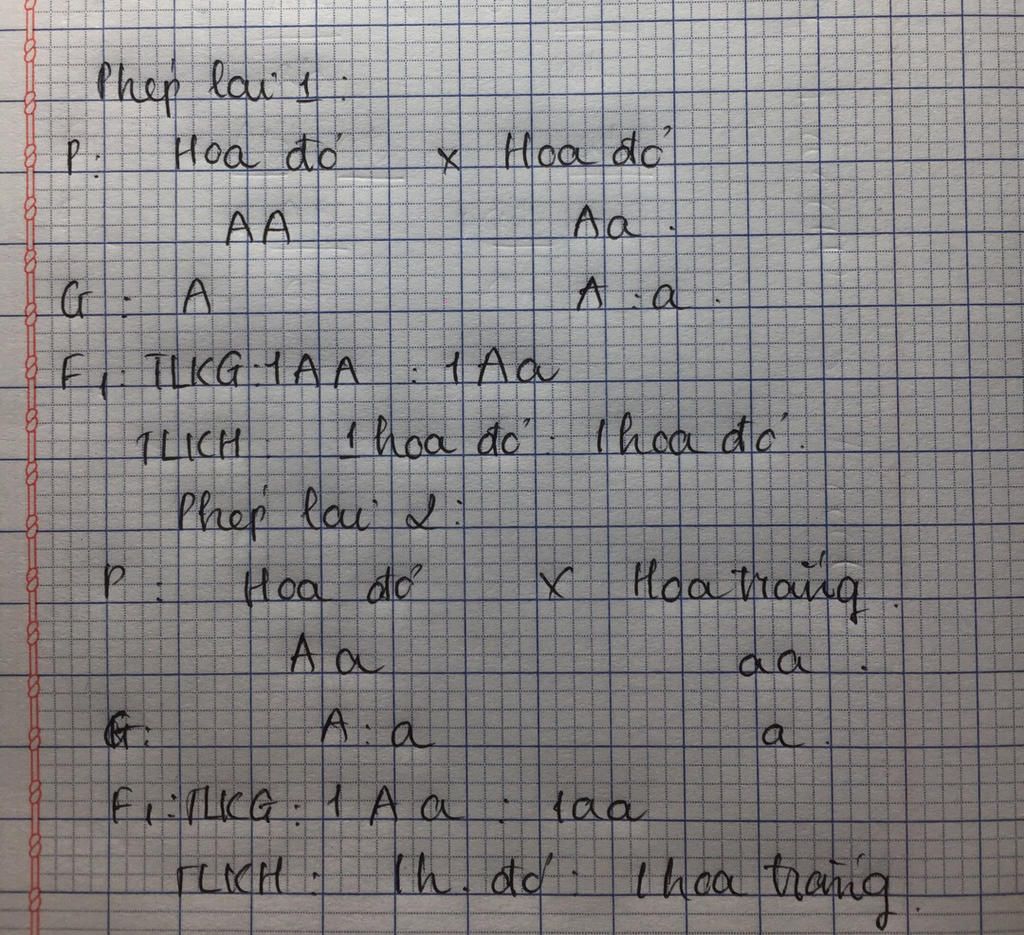 Phép lai 1:
P: Hoa đỏ x Hoa đỏ
AA Aa.
G: A A:a.
F1: TLKG: 1AA : 1Aa
TLKH 1 hoa đỏ: 1 hoa đỏ.
Phép lai 2:
P: Hoa đỏ x Hoa trắng.
Aa aa.
G: A:a a.
F1: TLKG: 1Aa : 1aa
TLKH: 1h. đỏ: 1 hoa trắng.